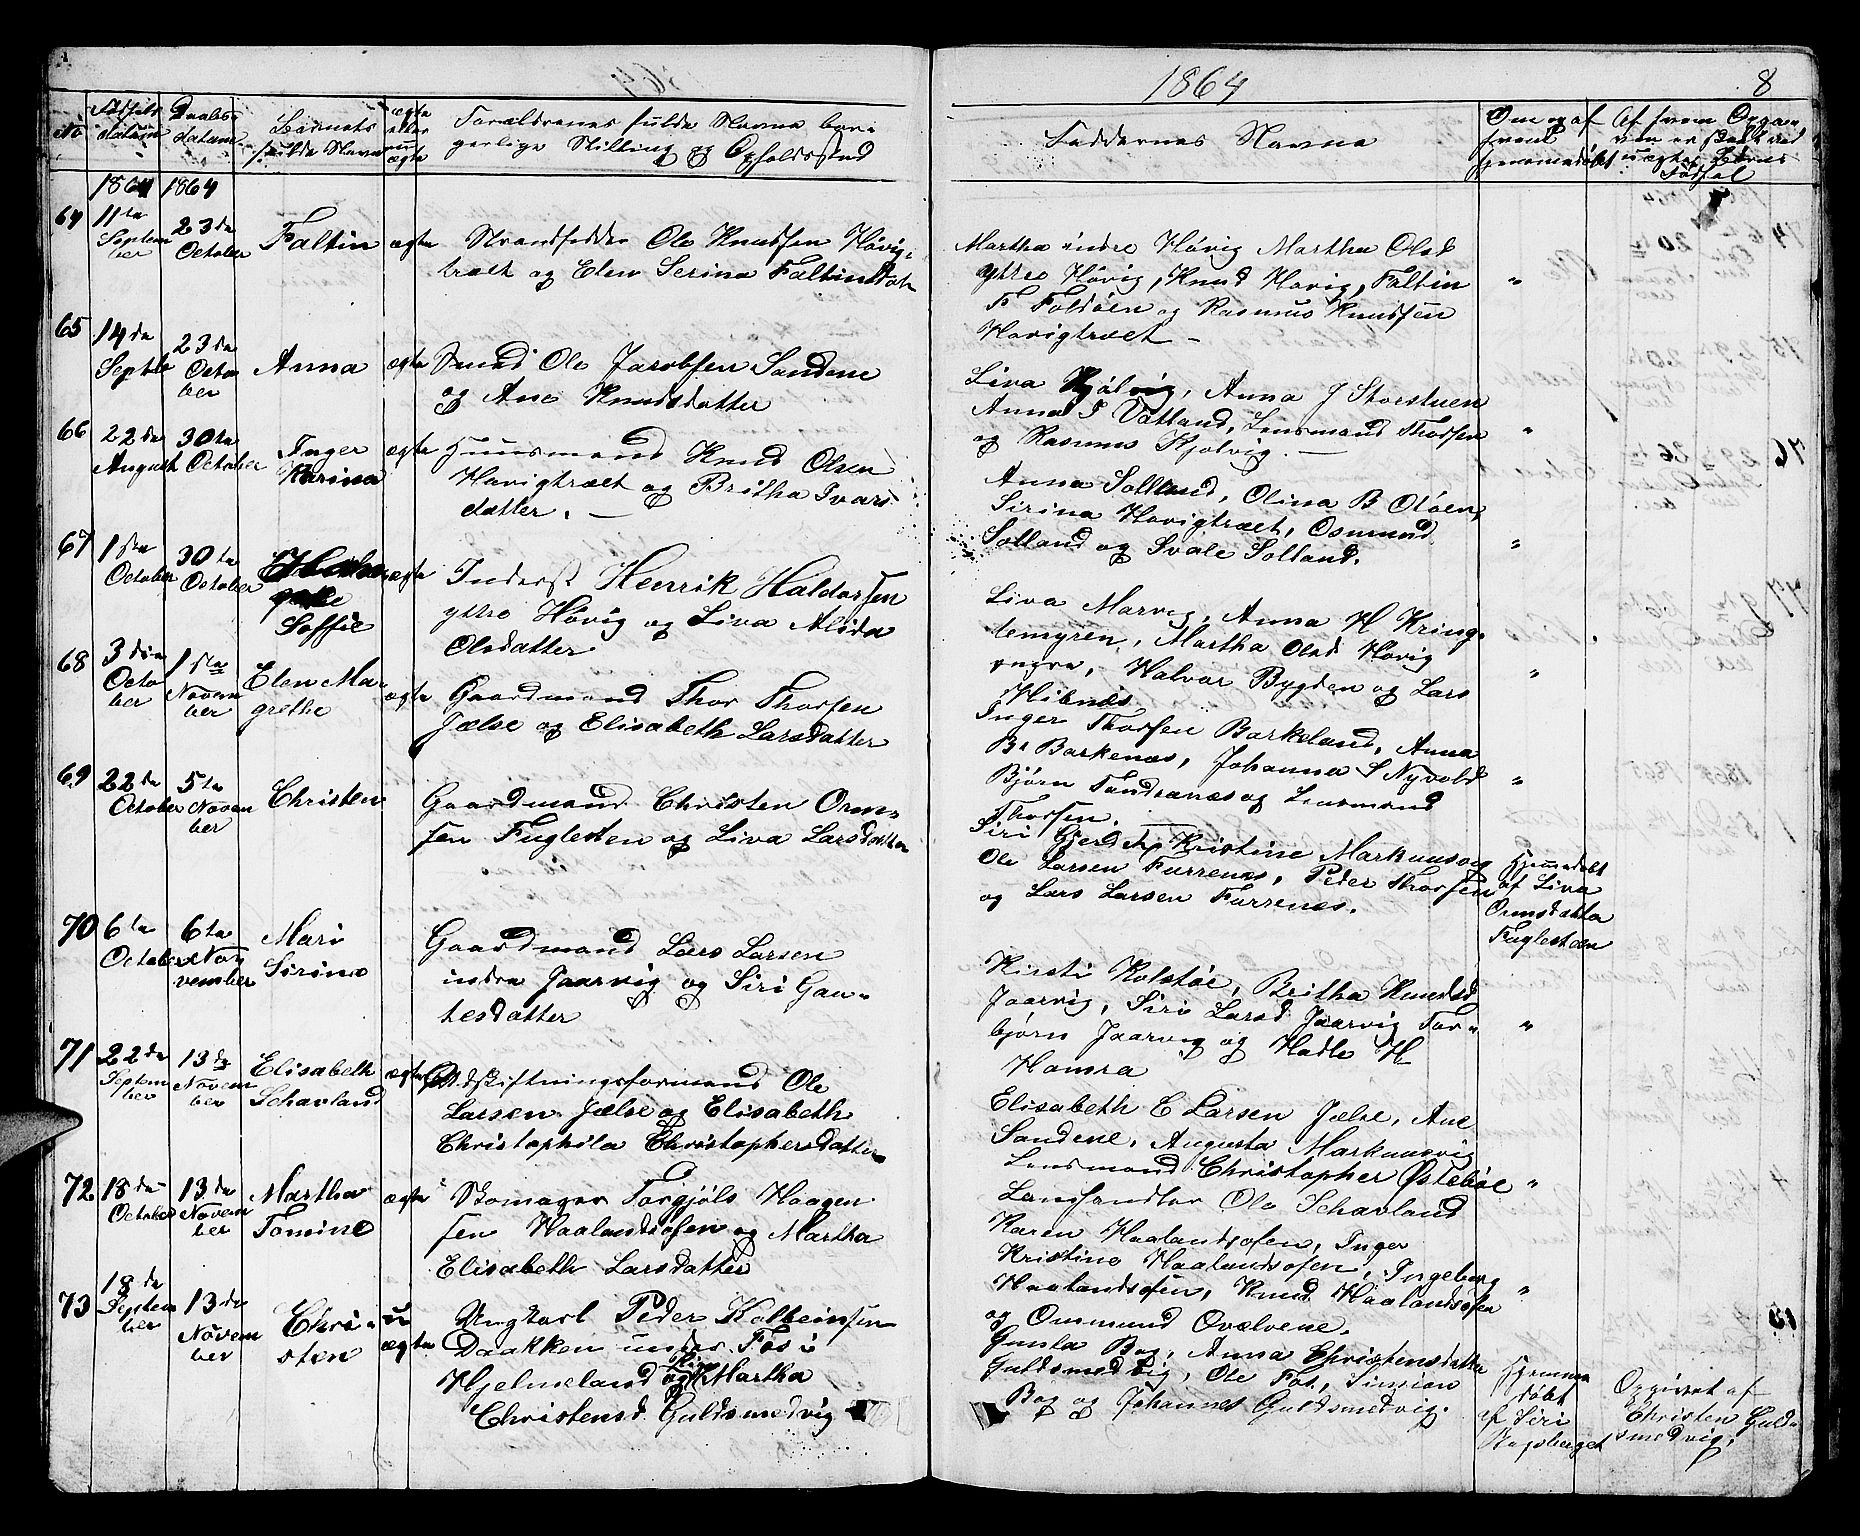 1864
8
No
Fødsels
datum
Daabs
datum
Barnets
fulde Navn
ægte
eller
u
ægte
Forældrenes fulde Navne bor-
gerlige Stilling og Opholdssted
Faddernes Navne
Om og af
hvem
hjemmedøbt
Af hvem Opgav
ven er skeet ved
uægte Børns
Fødsel
1864 1864
64
11te
Septem
ber
23de
October
Faltin
ægte
Strandsidder Ole Knudsen Høvig-
træet og Elen Serina Faltinsdat
Martha indre Høvig Martha Olsd
ytre Høvig, Knud Høvig, Faltin
F Foldøen og Rasmus Knudsen
Høvigtræet -
"
65
14de
Septbr
23de
Octo
ber
Anna
ægte
Smed Ole Jacobsen Sandene
og Ane Knudsdatter
Liva Hjølvig, Anna J Storstuen
Anna T Vatland, Lensmand Thorsen
og Rasmus Hjølvig. -
"
66
22de
August
30te
October
Inger
Karina
ægte
Huusmand Knud Olsen
Høvigtræet og Britha Ivars
datter. -
Anna Solland, Olina B Oløen,
Sirina Høvigtræet, Osmund
Solland og Svale Solland.
"
67
1ste
October
30te
October
Soffie
ægte
Inderst Henrik Haldorsen
ytre Høvig og Liva Alida
Olsdatter
Liva Marvig, Anna H Kring-
lemyren, Martha Olsd Høvig
yngre, Halvor Bygden og Lars
Hibnæs
"
68
3die
Octo
ber
1ste
Novem
ber
Elen Ma-
grethe
ægte
Gaardmand Thor Thorsen
Jælse og Elisabeth Larsdatter
Inger Thorsen Barkeland, Anna
B. Barkenæs, Johanna S Nyvold
Bjørn Tandranæs og Lensmand
Thorsen.
"
69
22de
October
5te
Novem
ber
Christen
Gaardmand Christen Orm-
sen Fuglesteen og Liva Larsdatter
Siri Gjerde, Kristine Markuusvig
Ole Larsen Furrenes, Peder Thorsen
og Lars Larsen Furrenes.
Hjemmedøbt
af Liva
Ormsdatter
Fuglesteen
70
6te
October
6te
Nov
vember
Mari
Sirine
Gaardmand Lars Larsen
indre Jaarvig og Siri Gau-
tesdatter
Kirsti Kolstøe, Britha Knudsd
Jaarvig, Siri Larsd Jaarvig Tor-
bjørn Jaarvig og Hadle H
Hamra
"
71
22de
Septem
ber
13de
Novem
ber
Elisabeth
Schavland
ægte
Udskiftningsformand Ole
Larsen Jælse og Elisabeth
Christophila Christophersdatter
Elisabeth C Larsen Jælse, Ane
Sandene, Augusta Markuusvig
Lensmand Christopher Østebøe
Landhandler Ole Schavland
"
72
18de
October
13de
Novem
ber
Martha
Tomine
ægte
Skomager Torgjøls Haagen
sen Haalandsosen og Martha
Elisabeth Larsdatter
Karen Haalandsosen, Inger
Kristine Haalandsosen, Ingeborg
Haalandsosen, Knud Haalandsosen
og Ommund Qvælvene.
"
73
18de
Septem
ber
13de
Novem
ber
Chri-
sten
u
ægte
Ungkarl Peder Kolbeinsen
Daakken under Fos i
Hjelmeland og Pige Martha
Christensd. Guldsmedvig
Gunla Bog, Anna Christensdatter
Guldsmedvig, Ole Fos, Simion
Bog og Johannes Guldsmedvig.
Hjemme
døbt
af Siri
Bogsberget
Opgivet af
Christen Guld-
smedvig.